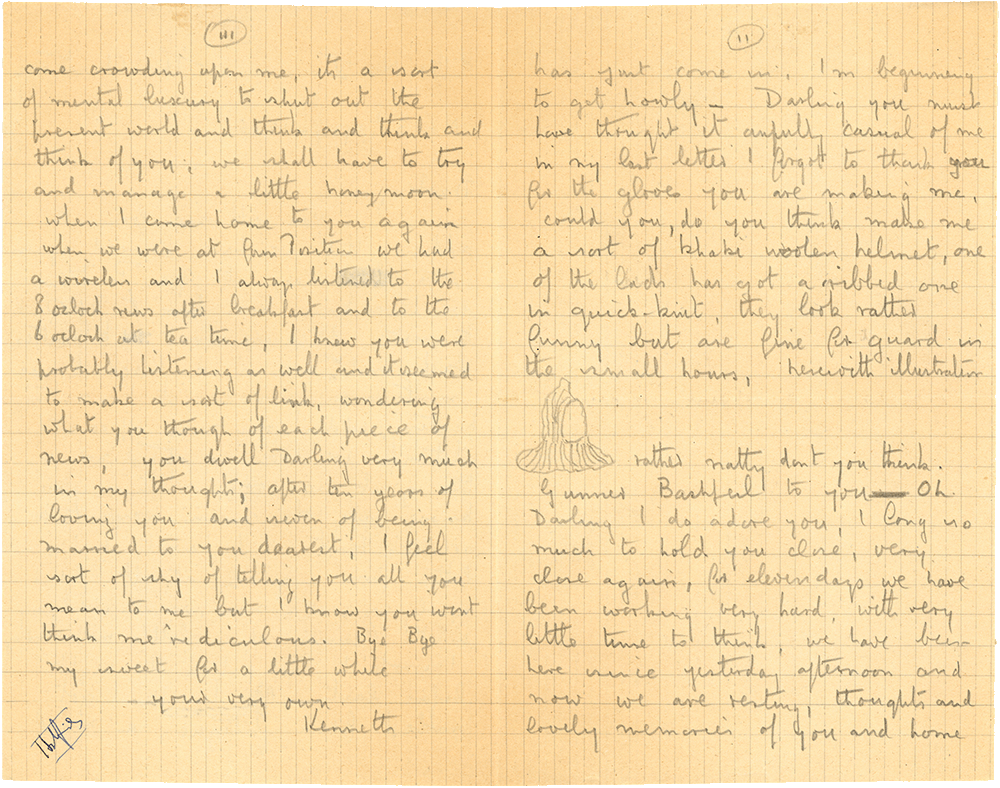 11
has just come in. I'm beginning
to get howly – Darling you must
have thought it awfully casual of me
in my last letter I forgot to thank you
for the gloves you are making me,
could you, do you think make me
a sort of khaki woolen helmet, one
of the lads has got a ribbed one
in quick-knit, they look rather
funny but are fine for guard in
the small hours, herewith illustration
rather natty don't you think.
Gunner Bashful to you — Oh
Darling I do adore you, I long so
much to hold you close, very
close again, for eleven days we have
been working very hard, with very
little time to think, we have been
here since yesterday afternoon and
now we are resting, thoughts and
lovely memories of you and home
111
come crowding upon me, its a sort
of mental luxury to shut out the
present world and think and think and
think of you; we shall have to try
and manage a little honeymoon.
when I come home to you again
when we were at Gun Position we had
a wireless and I always listened to the
8 oclock news after breakfast and to the
6 oclock at tea time, I knew you were
probably listening as well and it seemed
to make a sort of link, wondering
what you though of each piece of
news, you dwell Darling very much
in my thoughts; after ten years of
loving you and seven of being
married to you dearest, I feel
sort of shy of telling you all you
mean to me but I know you wont
think me rediculous. Bye Bye
my sweet for a little while
– your very own
Kenneth